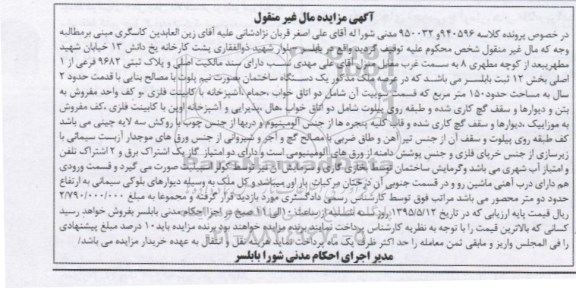 آگهی مزایده مال غیر منقول
در خصوص پرونده کلاسه ۹۴۰۵۹۶و ۹۵۰۰۳۲ مدنی شورا له آقای علی اصغر قربان نژادشانی علیه آقای زین العابدین کاسگری مبنی برمطالبه
وجه که مال غیر منقول شخص محکوم علیه توقیف گردید واقع در بابلسر بلوار شهید ذوالفقاری پشت کارخانه یخ دانش ۱۳ خیابان شهید
مطهریبعد از کوچه مطهری ۸ به سمت غرب مقابل منزل آقای علی مهدی نسب دارای سند مالکیت اصلی و پلاک ثبتی ۹۶۸۲ فرعی از ۱
اصلی بخش ۱۲ ثبت بابلسر می باشد که در عرصه ملک مذکور یک دستگاه ساختمان بصورت نیم پلوت با مصالح بنایی با قدمت حدود ۲
سال به مساحت حدود۱۵۰ متر مربع که قسمت سوئیت آن شامل دو اتاق خواب ،حمام ،آشپزخانه با کابینت فلزی ،و کف واحد مفروش به
بتن و دیوارها و سقف گچ کاری شده و طبقه روی پیلوت شامل دو اتاق خواب ،هال ،پذیرایی و آشپزخانه اوپن با کابینت فلزی ،کف مفروش
به موزاییک ،دیوارها و سقف گچ کاری شده و قاب کلیه پنجره ها از جنس آلومینیوم و دربها از جنس چوب با روکش سه لایه چینی می باشد
کف طبقه روی پیلوت و سقف آن از جنس تیر آهن و طاق ضربی با مصالح گچ و آجر و شیروانی از جنس ورق های موجدار آزبست سیمانی با
زیرسازی از جنس خرپای فلزی و جنس پوشش دامنه از ورق های آلومینیومی است و دارای دو امتیاز گاز یک اشتراک برق و ۲ اشتراک تلفن
و امتیاز آب شهری می باشد وگرمایش ساختمان توسط بخاری گازی و سرمایش آن نیز توسط کولر اسپیلت صورت می گیرد و قسمت ورودی
هم دارای درب آهنی ماشین رو و در قسمت جنوبی آن درختان مرکبات بار آور میباشد و کل ملک به وسیله دیوارهای بلوکی سیمانی به ارتفاع
حدود دو متر محصور می باشد مراتب فوق توسط کارشناس رسمی دادگستری مورد بازدید قرار گرفته و مجموعا به مبلغ ۲/۷۹۰/۰۰۰/۰۰۰
ریال قیمت پایه ارزیابی که در تاریخ ۱۳۹۵/۵/۱۲ روز سه شنبه از ساعت ۱۰ الی ۱۱ صبح در اجرا احکام مدنی بابلسر بفروش خواهد رسید
کسانی که بالاترین قیمت را با توجه به نظریه کارشناس پرداخت نمایند برنده مزایده خواهند بود برنده مزایده باید۱۰ درصد مبلغ پیشنهادی
را فی المجلس واریز و مابقی ثمن معامله را حد اکثر ظرف یک ماه پرداخت نماید هزینه نقل و انتقال به عهده خریدار مزایده می باشد/
مدیر اجرای احکام مدنی شورا بابلسر